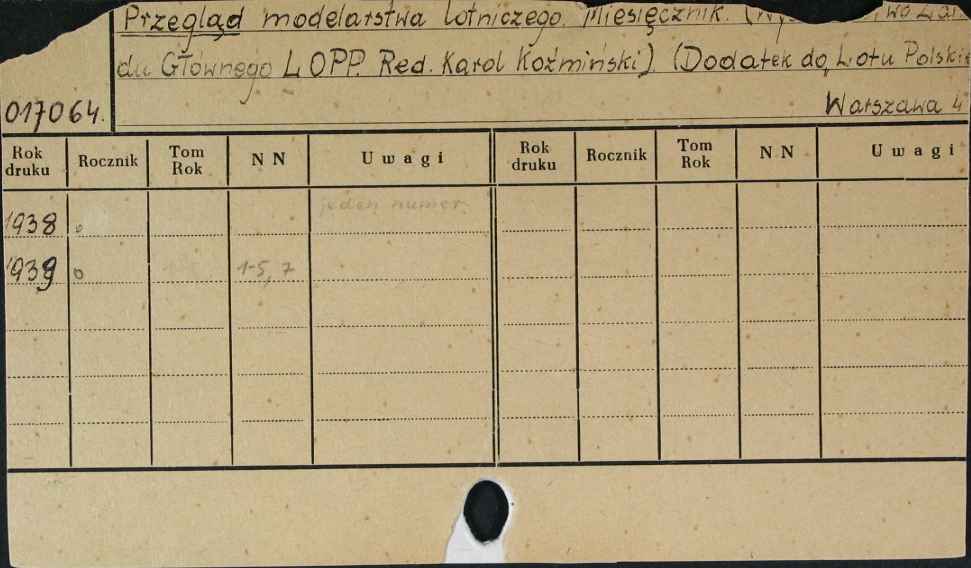 Przegląd modelarstwa lotniczego. Miesięcznik.
du Głównego LOPP. Red. Karol Koźmiński) (Dodatek do Lotu Polskie
017064. Warszawa 4
Rok druku Rocznik Tom Rok NN Uwagi Rok druku Rocznik Tom Rok NN Uwagi
jeden numer
1938 o
1939 o 1-5, 7